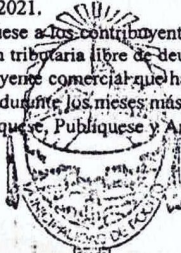 2021.
uese a los contribuyent
n tributaria libre de deu
yente comercial que ha
durante los meses más
quese, Publíquese y A
MUNICIPALIDAD DE POCITO